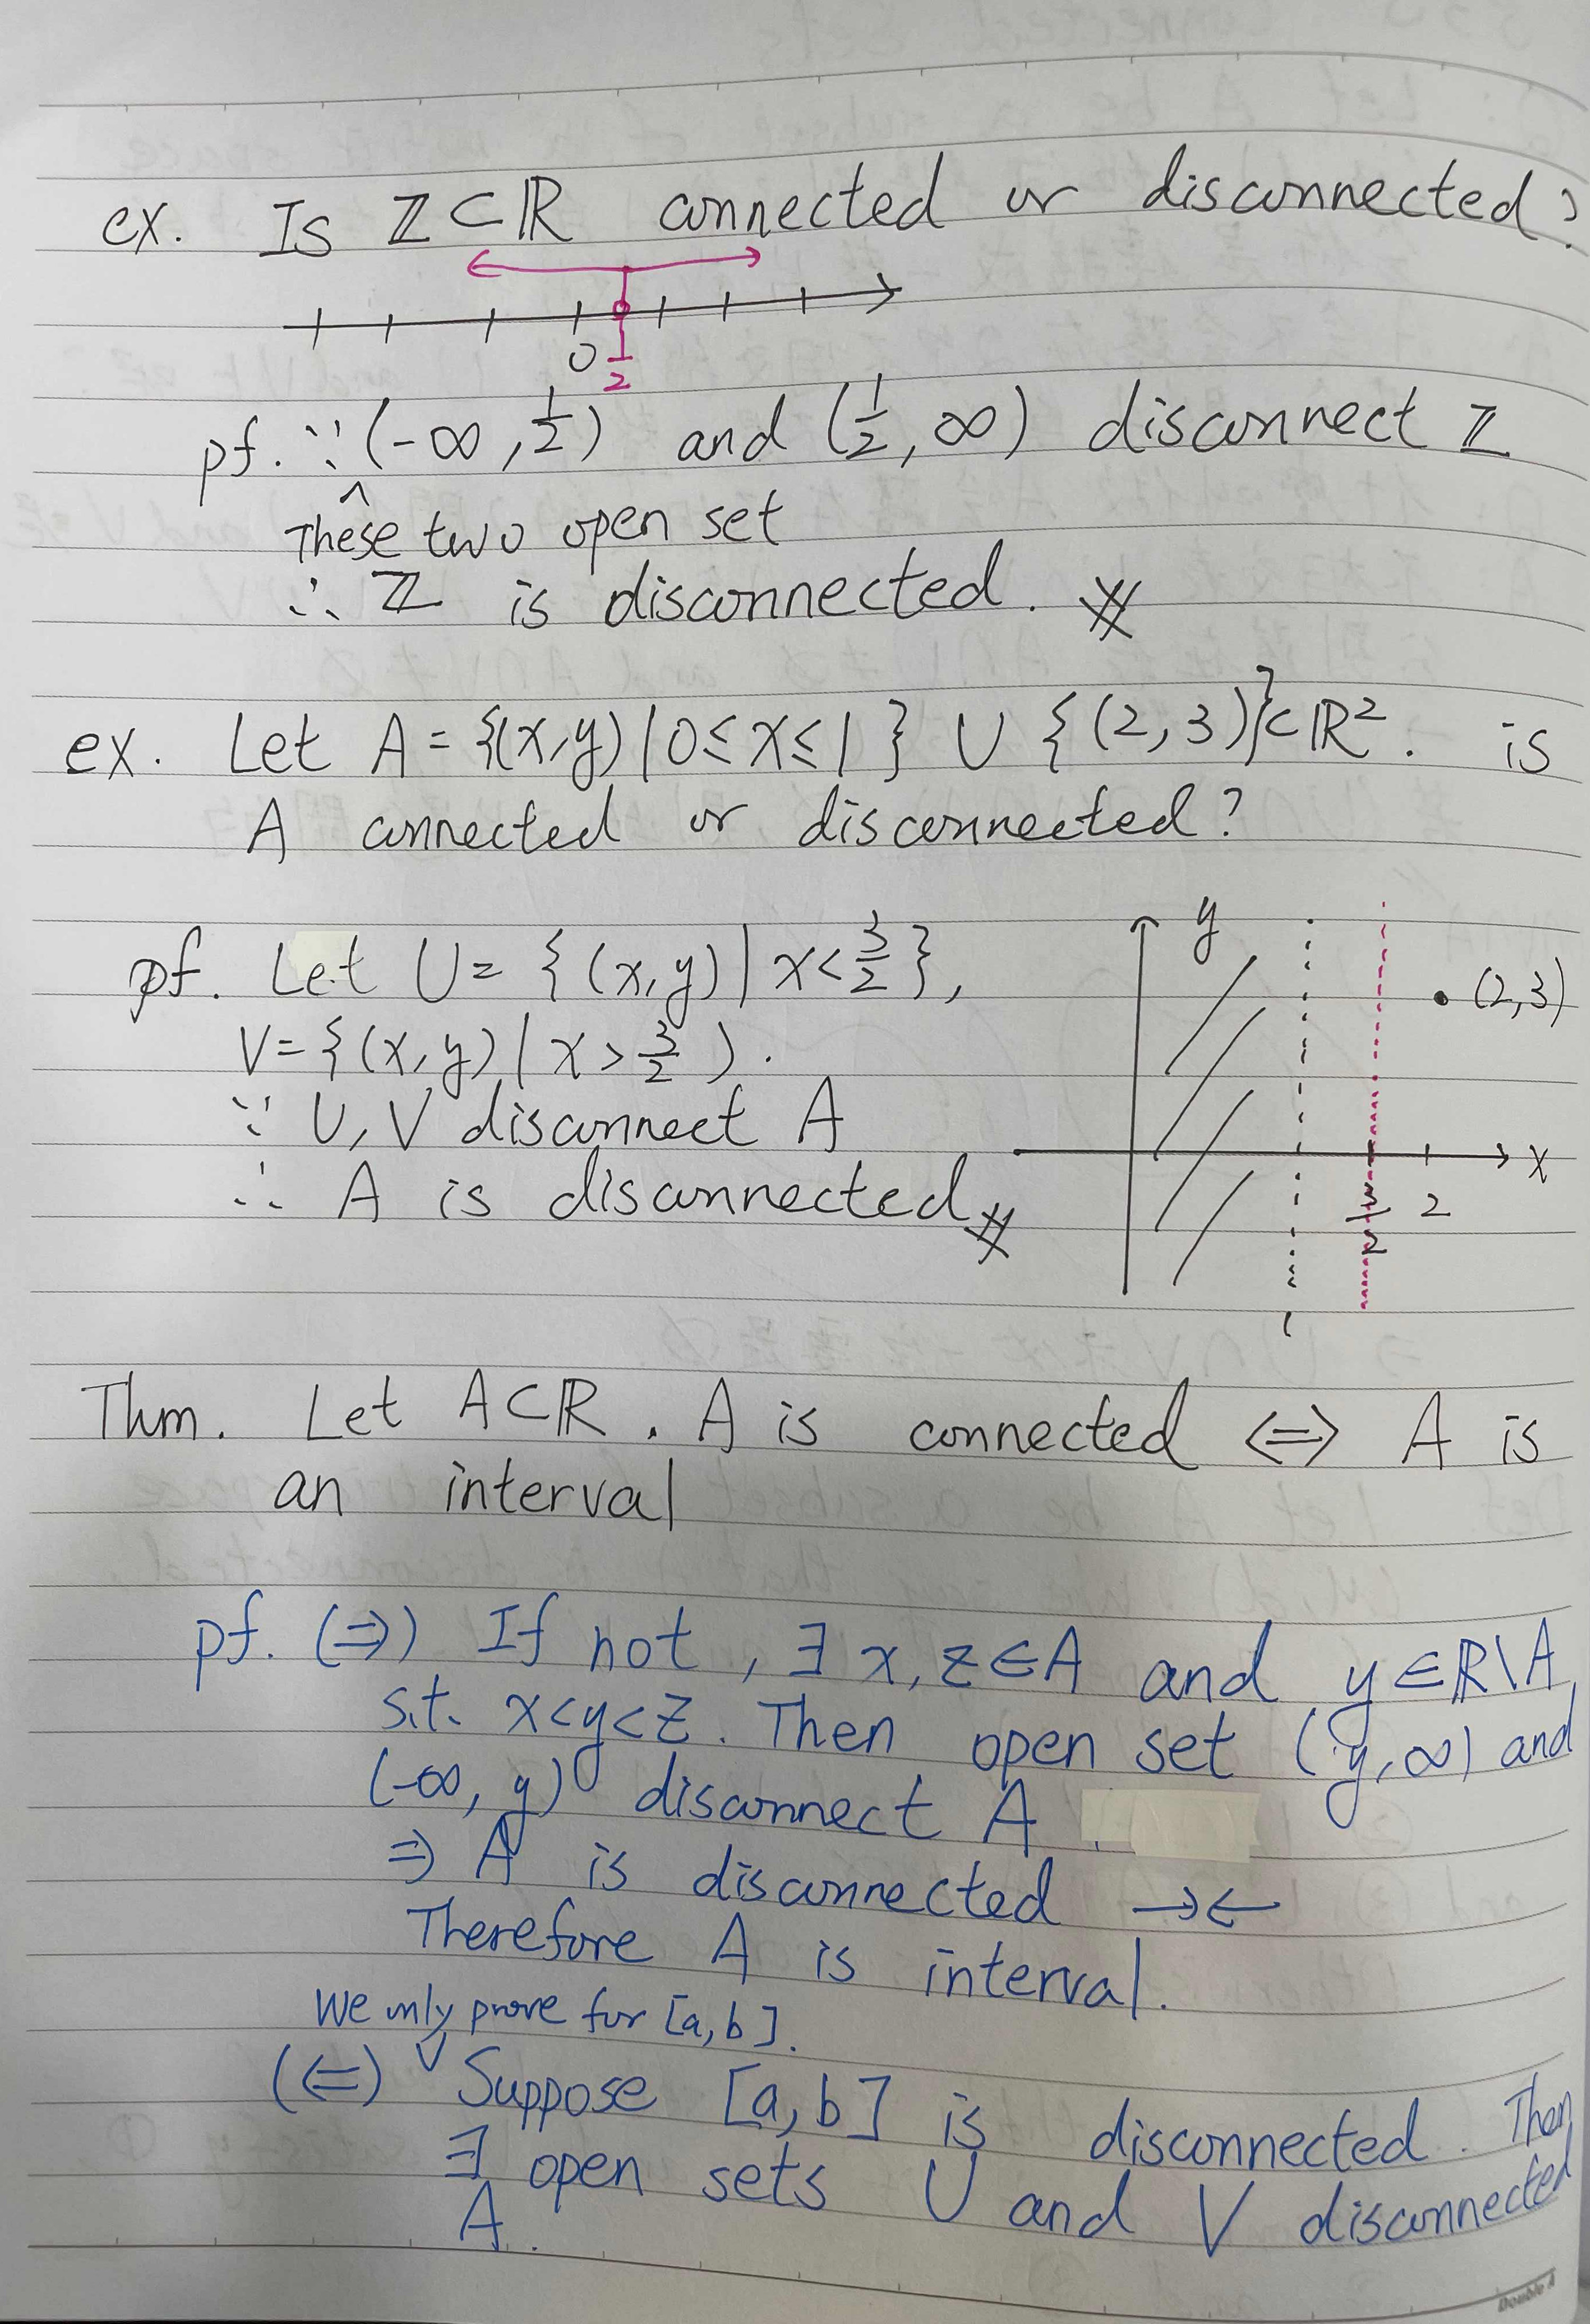 ex. Is ℤ⊂ℝ connected or disconnected?
0 1/2
pf. ∵ (-∞, 1/2) and (1/2, ∞) disconnect ℤ
^
These two open set
∴ ℤ is disconnected. #
ex. Let A = {(x,y) | 0≤x≤1} ∪ {(2,3)}⊂ℝ². is
A connected or disconnected?
pf. Let U = {(x,y) | x<3/2},
V = {(x,y) | x > 3/2 ).
∵ U, V disconnect A
∴ A is disconnected #
y
(2,3)
x
3/2 2
1
Thm. Let A⊂ℝ. A is connected ⇔ A is
an interval
pf. (⇒) If not, ∃ x, z∈A and y∈ℝ\A
s.t. x<y<z. Then open set (y,∞) and
(-∞, y) disconnect A.
⇒ A is disconnected →←
Therefore A is interval.
We only prove for [a,b].
(⇐) ∨ Suppose [a,b] is disconnected. Then
∃ open sets U and V disconnected
A.
Double A